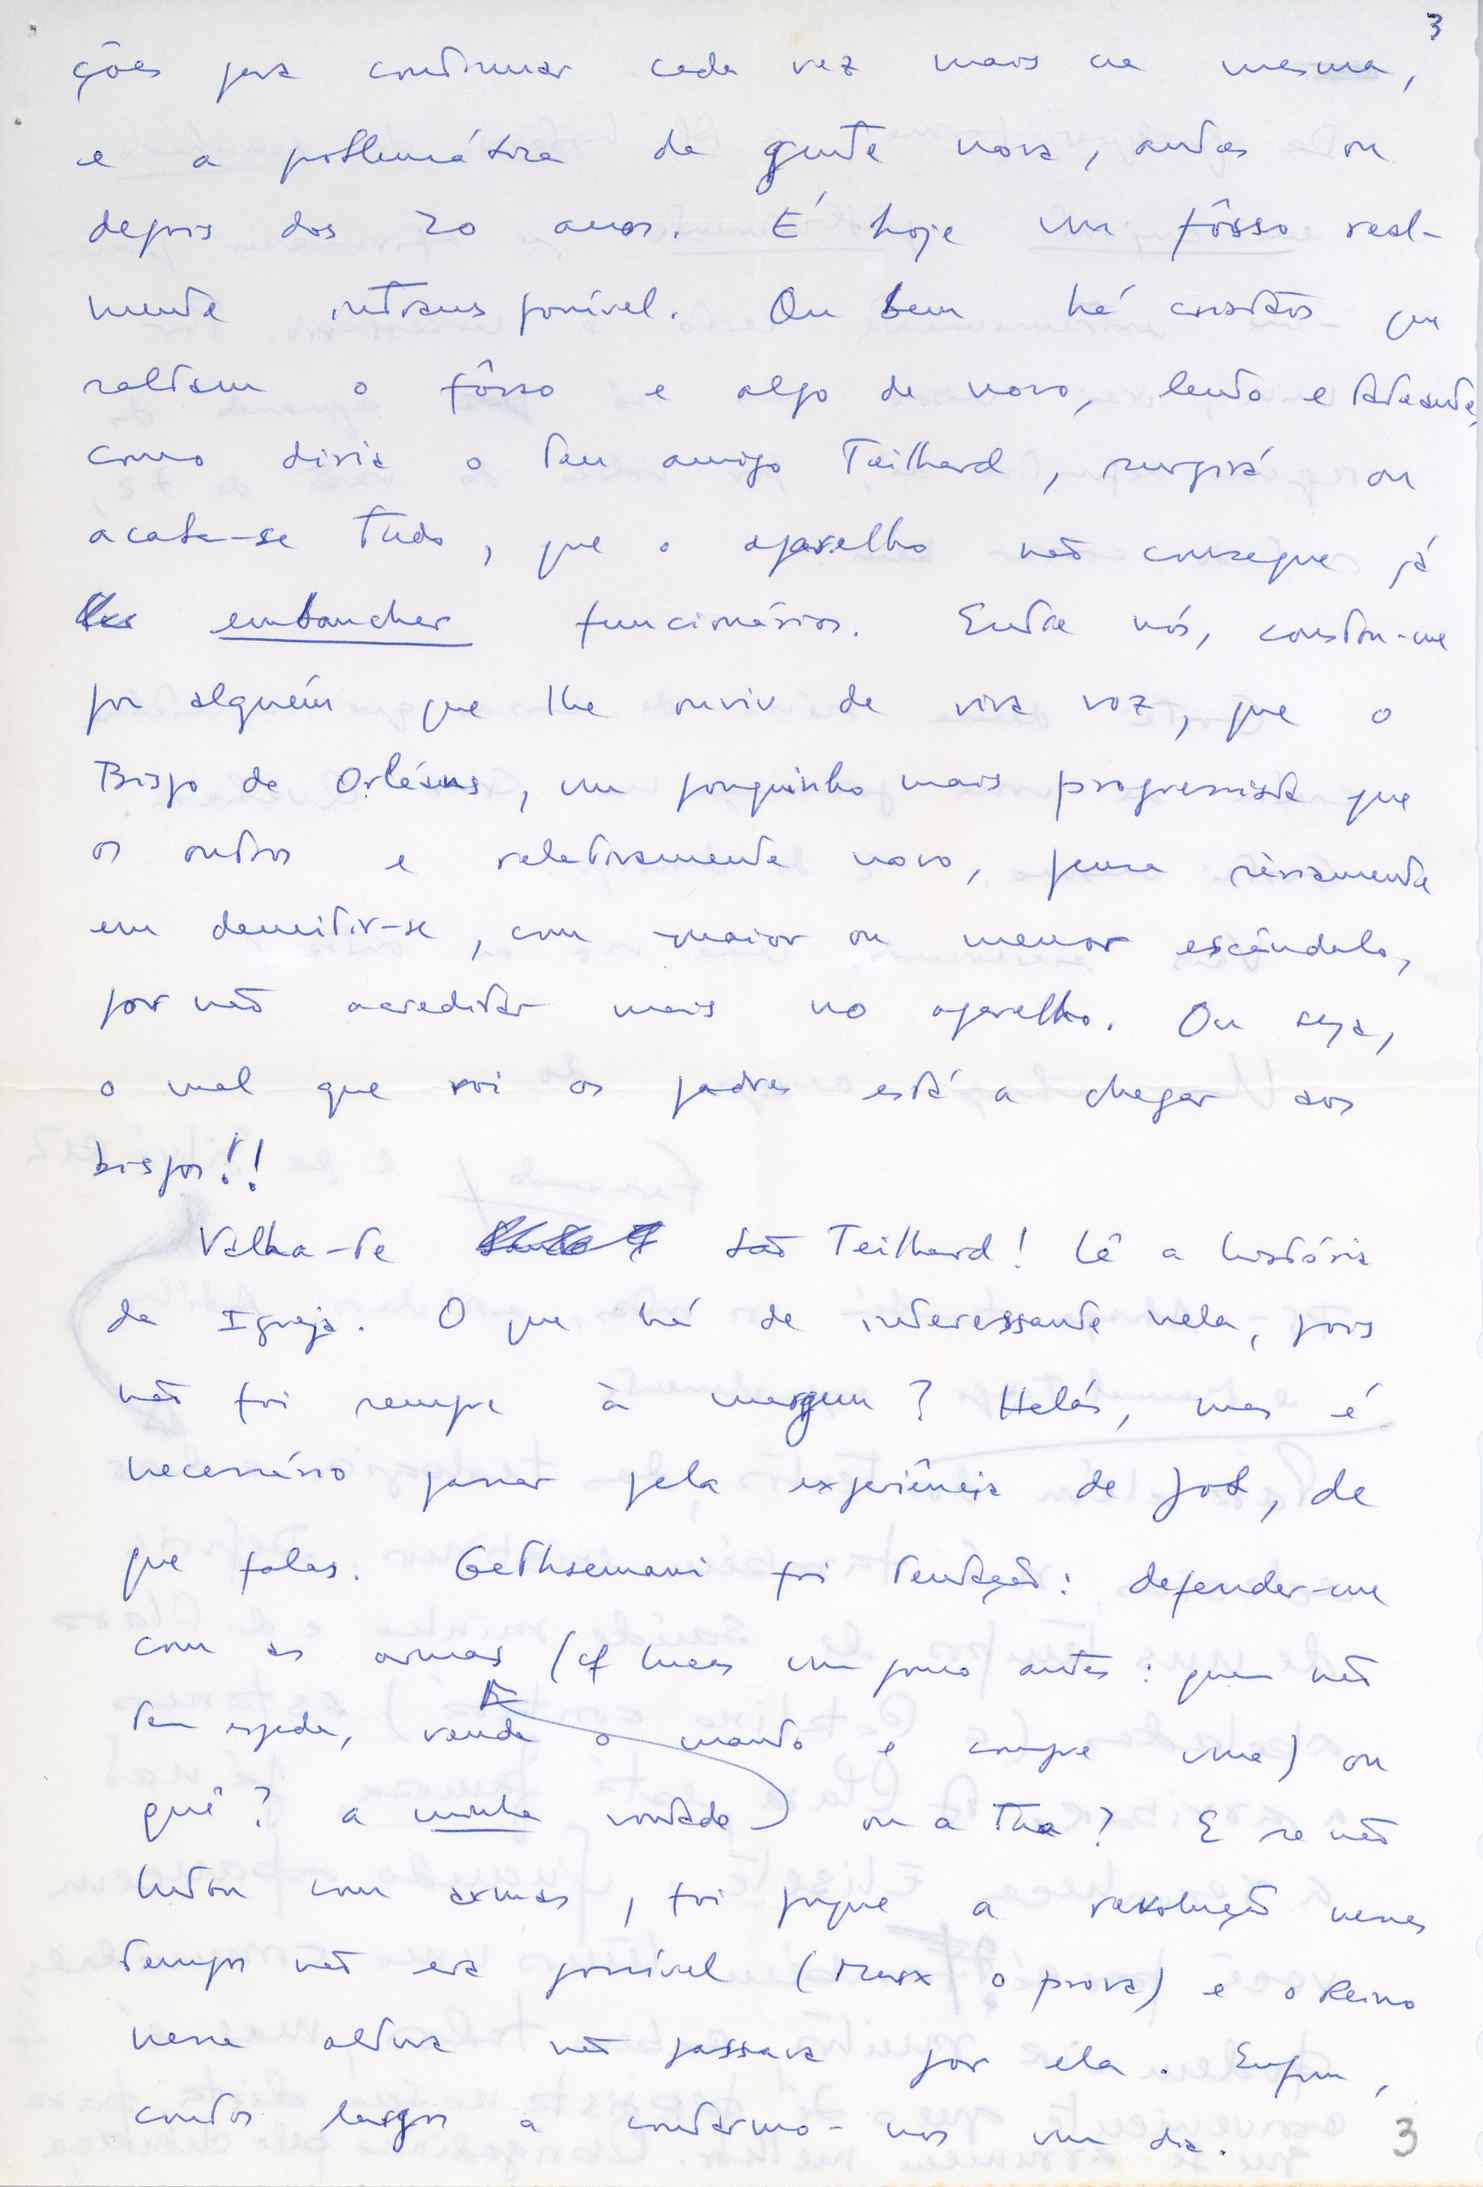 3
ções para continuar cada vez mais na mesma,
e a problemática de gente nova, antes ou
depois dos 20 anos. É hoje um fôsso real-
mente intransponível. Ou bem há cristãos que
saltam o fôsso e algo de novo, lento e
como diria o teu amigo Teilhard, surgirá ou
acaba-se tudo, que o aparelho não consegue já
embaucher funcionários. Entre nós, constou-me
por alguém que lhe ouviu de viva voz, que o
Bispo de Orléans, um pouquinho mais progressista que
os outros e relativamente novo, pensa sèriamente
em demitir-se, com maior ou menor escândalo,
por não acreditar mais no aparelho. Ou seja,
o mal que roi os padres está a chegar aos
bispos!!
Valha-te São Teilhard! Lê a história
da Igreja. O que há de interessante nela, pois
não foi sempre à margem? Helás, mas é
necessário passar pela experiência de Job, de
que falas. Gethsemani foi tentação: defender-me
com as armas (cf Lucas um pouco antes: quem não
tem espada, venda o manto e compre uma) ou
quê? a minha vontade) ou a Tua? E se não
lutou com armas, foi porque a revolução nesses
tempos não era possível (Marx o prova) e o Reino
nessa altura não passava por ela. Enfim,
contos largos a contarmo-nos um dia.
3